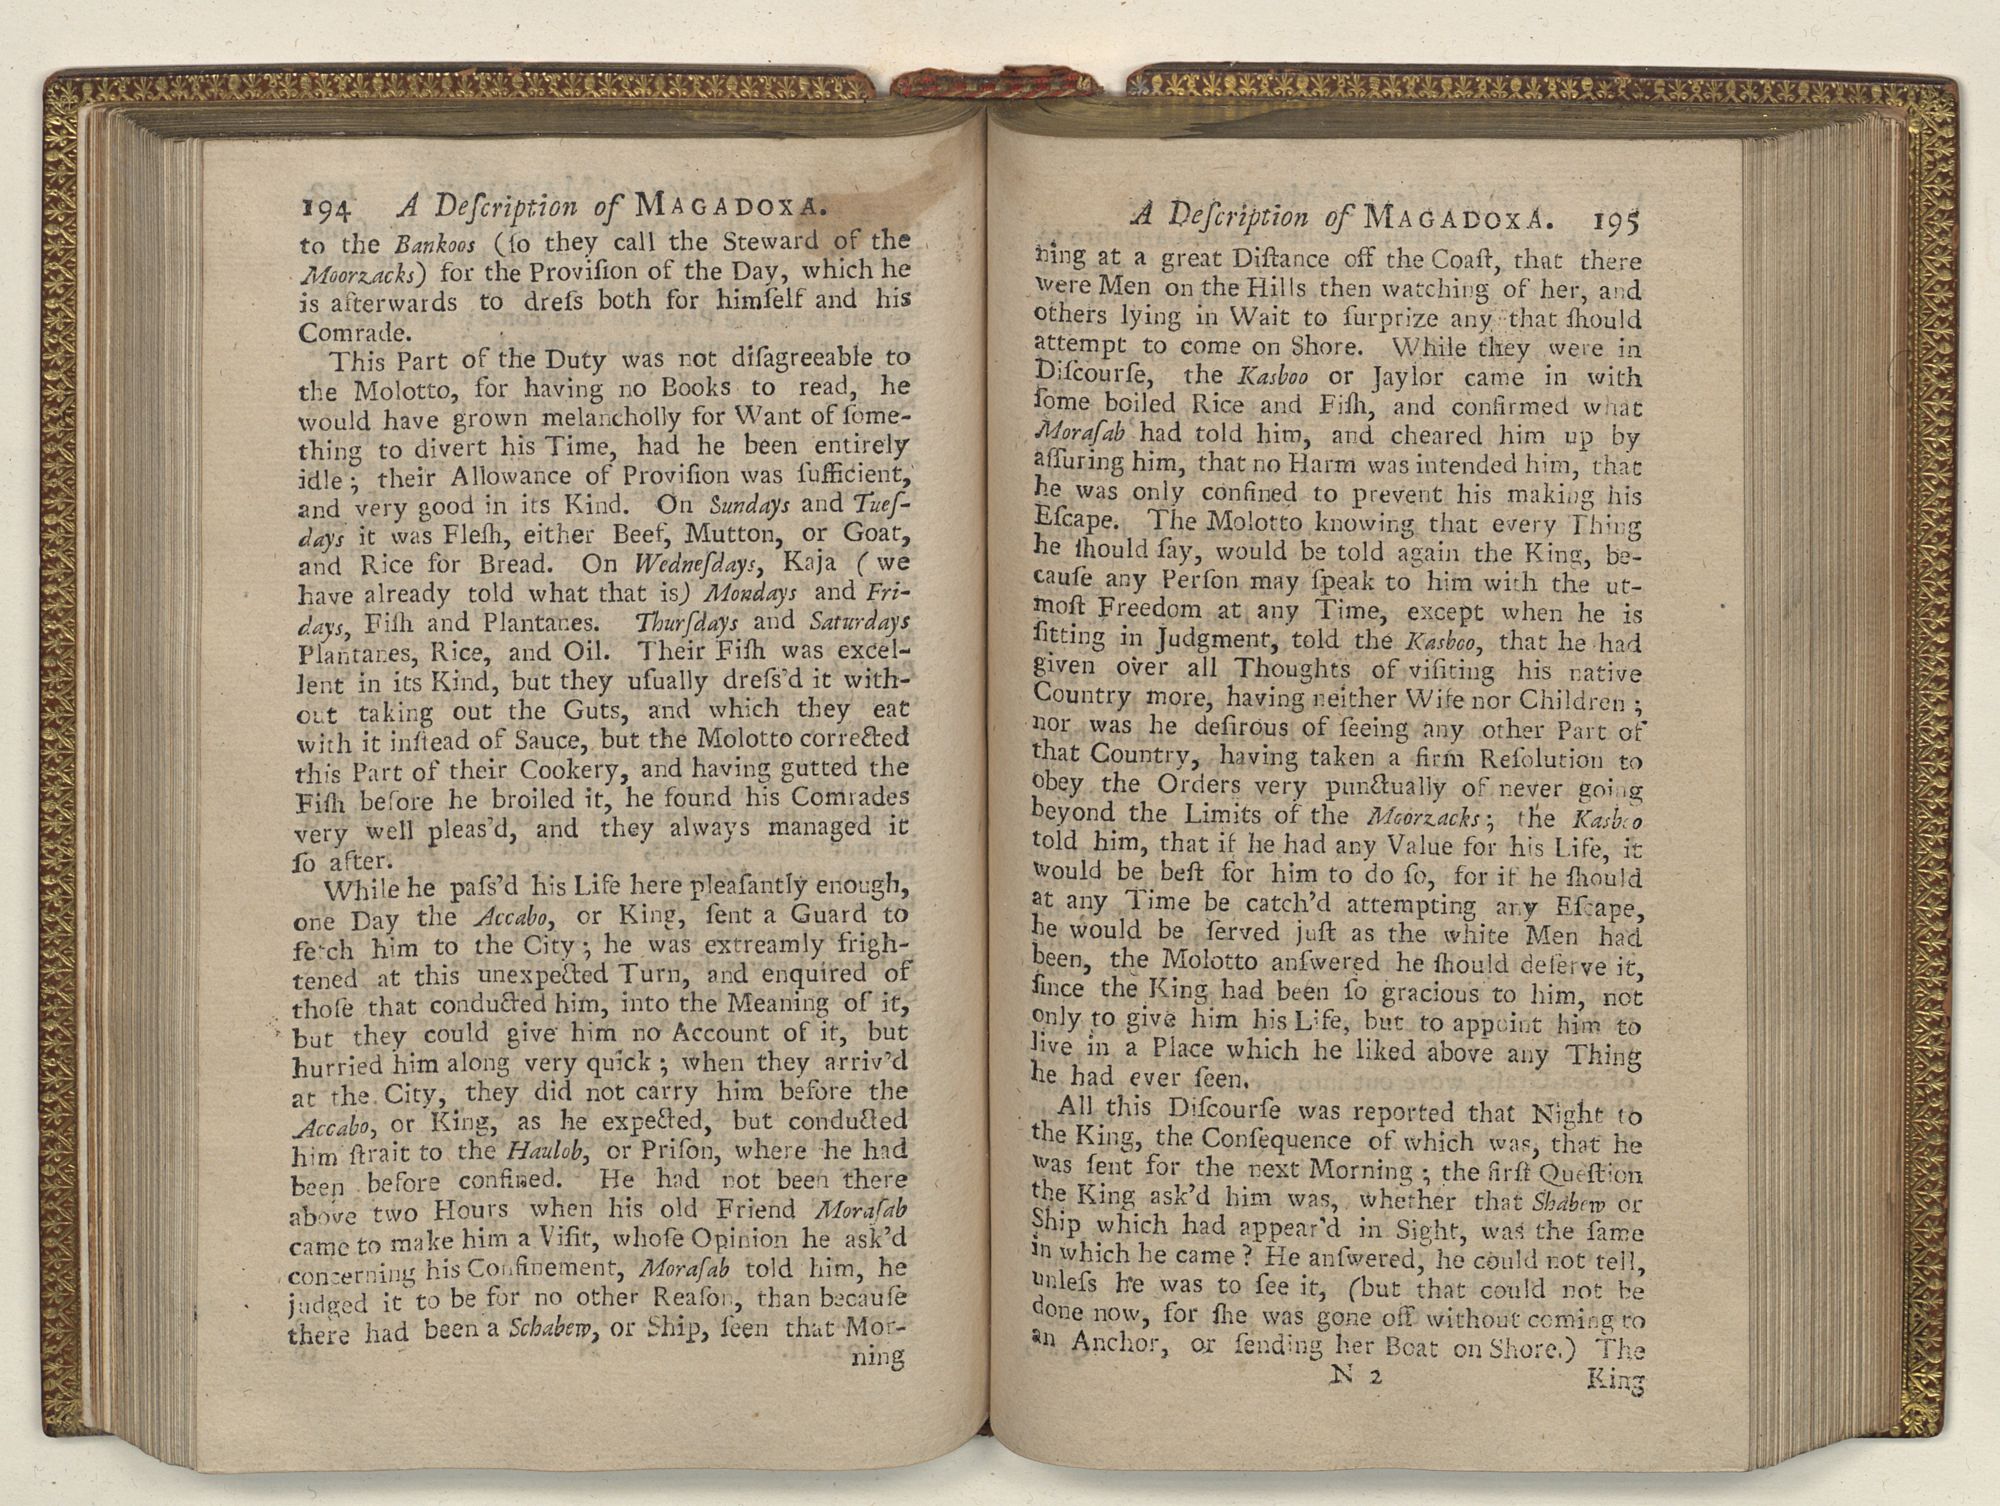 194 A Deſcription of MAGADOXA.
to the Bankoos (ſo they call the Steward of the
Moorzacks) for the Proviſion of the Day, which he
is afterwards to dreſs both for himſelf and his
Comrade.
This Part of the Duty was not diſagreeable to
the Molotto, for having no Books to read, he
would have grown melancholly for Want of ſome-
thing to divert his Time, had he been entirely
idle; their Allowance of Proviſion was ſufficient,
and very good in its Kind. On Sundays and Tueſ-
days it was Fleſh, either Beef, Mutton, or Goat,
and Rice for Bread. On Wedneſdays, Kaja (we
have already told what that is) Mondays and Fri-
days, Fiſh and Plantanes. Thurſdays and Saturdays
Plantanes, Rice, and Oil. Their Fiſh was excel-
lent in its Kind, but they uſually dreſs'd it with-
out taking out the Guts, and which they eat
with it inſtead of Sauce, but the Molotto corrected
this Part of their Cookery, and having gutted the
Fiſh before he broiled it, he found his Comrades
very well pleas'd, and they always managed it
ſo after.
While he paſs'd his Life here pleaſantly enough,
one Day the Accabo, or King, ſent a Guard to
fetch him to the City; he was extreamly frigh-
tened at this unexpected Turn, and enquired of
thoſe that conducted him, into the Meaning of it,
but they could give him no Account of it, but
hurried him along very quick; when they arriv'd
at the City, they did not carry him before the
Accabo, or King, as he expected, but conducted
him ſtrait to the Haulob, or Priſon, where he had
been before confined. He had not been there
above two Hours when his old Friend Moraſab
came to make him a Viſit, whoſe Opinion he ask'd
concerning his Confinement, Moraſab told him, he
judged it to be for no other Reaſon, than becauſe
there had been a Schabew, or Ship, ſeen that Mor-
ning
A Deſcription of MAGADOXA. 195
ning at a great Diſtance off the Coaſt, that there
were Men on the Hills then watching of her, and
others lying in Wait to ſurprize any that ſhould
attempt to come on Shore. While they were in
Diſcourſe, the Kasboo or Jaylor came in with
ſome boiled Rice and Fiſh, and confirmed what
Moraſab had told him, and cheared him up by
aſſuring him, that no Harm was intended him, that
he was only confined to prevent his making his
Eſcape. The Molotto knowing that every Thing
he ſhould ſay, would be told again the King, be-
cauſe any Perſon may ſpeak to him with the ut-
moſt Freedom at any Time, except when he is
ſitting in Judgment, told the Kasboo, that he had
given over all Thoughts of viſiting his native
Country more, having neither Wife nor Children;
nor was he deſirous of ſeeing any other Part of
that Country, having taken a firm Reſolution to
obey the Orders very punctually of never going
beyond the Limits of the Moorzacks; the Kasboo
told him, that if he had any Value for his Life, it
would be beſt for him to do ſo, for if he ſhould
at any Time be catch'd attempting any Eſcape,
he would be ſerved juſt as the white Men had
been, the Molotto anſwered he ſhould deſerve it,
ſince the King had been ſo gracious to him, not
only to give him his Life, but to appoint him to
live in a Place which he liked above any Thing
he had ever ſeen.
All this Diſcourſe was reported that Night to
the King, the Conſequence of which was, that he
was ſent for the next Morning; the firſt Queſtion
the King ask'd him was, whether that Shabew or
Ship which had appear'd in Sight, was the ſame
in which he came? He anſwered, he could not tell,
unleſs he was to ſee it, (but that could not be
done now, for ſhe was gone off without coming to
an Anchor, or ſending her Boat on Shore.) The
N 2 King